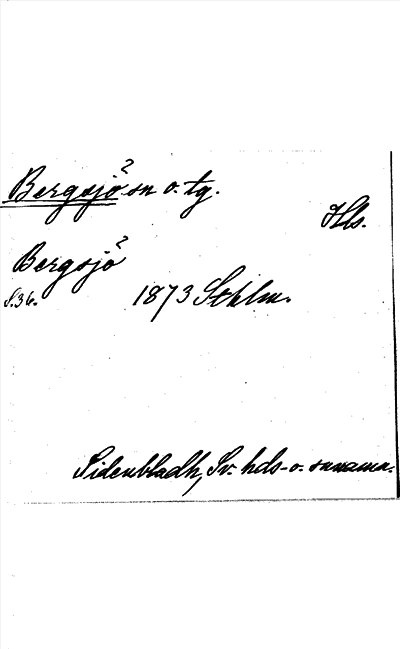 Bergsjö sn o. tg.
Hls.
Bergsjö
S.36. 1873 Sthlm.
Sidenbladh, Sv. hds- o. snnamn.